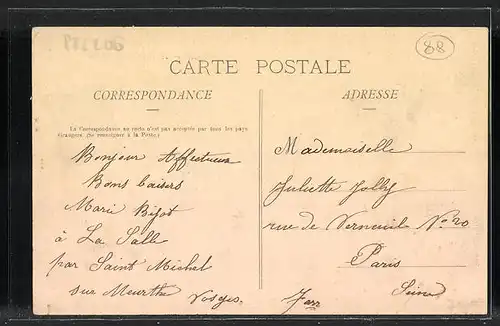 88
CARTE POSTALE
CORRESPONDANCE
La Correspondance au recto n'est pas acceptée par tous les pays
étrangers (Se renseigner à la Poste)
Bonjour Affectueux
Bons baisers
Marie Bijot
à La Salle
par Saint Michel
sur Meurthe Vosges
ADRESSE
Mademoiselle
Juliette Jolly
rue de Verneuil No 20
Paris
Seine